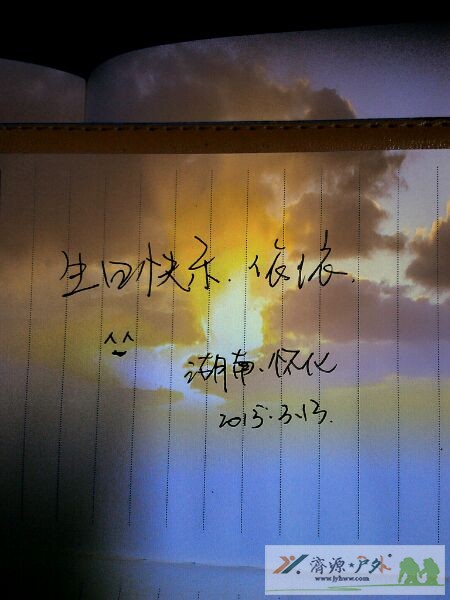 生日快乐.依依.
^^
湖南.怀化
2015.3.13.
济源★户外
www.jyhww.com